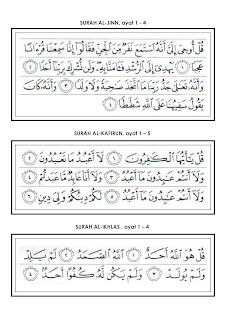 SURAH AL-JINN, ayat 1 - 4
قُلْ أُوحِىَ إِلَىَّ أَنَّهُ ٱسْتَمَعَ نَفَرٌ مِّنَ ٱلْجِنِّ فَقَالُوٓا۟ إِنَّا سَمِعْنَا قُرْءَانًا
عَجَبًا ١ يَهْدِىٓ إِلَى ٱلرُّشْدِ فَـَٔامَنَّا بِهِۦ وَلَن نُّشْرِكَ بِرَبِّنَآ أَحَدًا ٢
وَأَنَّهُۥ تَعَٰلَىٰ جَدُّ رَبِّنَا مَا ٱتَّخَذَ صَٰحِبَةً وَلَا وَلَدًا ٣ وَأَنَّهُۥ كَانَ
يَقُولُ سَفِيهُنَا عَلَى ٱللَّهِ شَطَطًا ٤
SURAH AL-KAFIRUN, ayat 1 – 5
قُلْ يَٰٓأَيُّهَا ٱلْكَٰفِرُونَ ١ لَآ أَعْبُدُ مَا تَعْبُدُونَ ٢
وَلَآ أَنتُمْ عَٰبِدُونَ مَآ أَعْبُدُ ٣ وَلَآ أَنَا۠ عَابِدٌ مَّا عَبَدتُّمْ ٤
وَلَآ أَنتُمْ عَٰبِدُونَ مَآ أَعْبُدُ ٥ لَكُمْ دِينُكُمْ وَلِىَ دِينِ ٦
SURAH AL-IKHLAS , ayat 1 – 4
قُلْ هُوَ ٱللَّهُ أَحَدٌ ١ ٱللَّهُ ٱلصَّمَدُ ٢ لَمْ يَلِدْ
وَلَمْ يُولَدْ ٣ وَلَمْ يَكُن لَّهُۥ كُفُوًا أَحَدٌۢ ٤